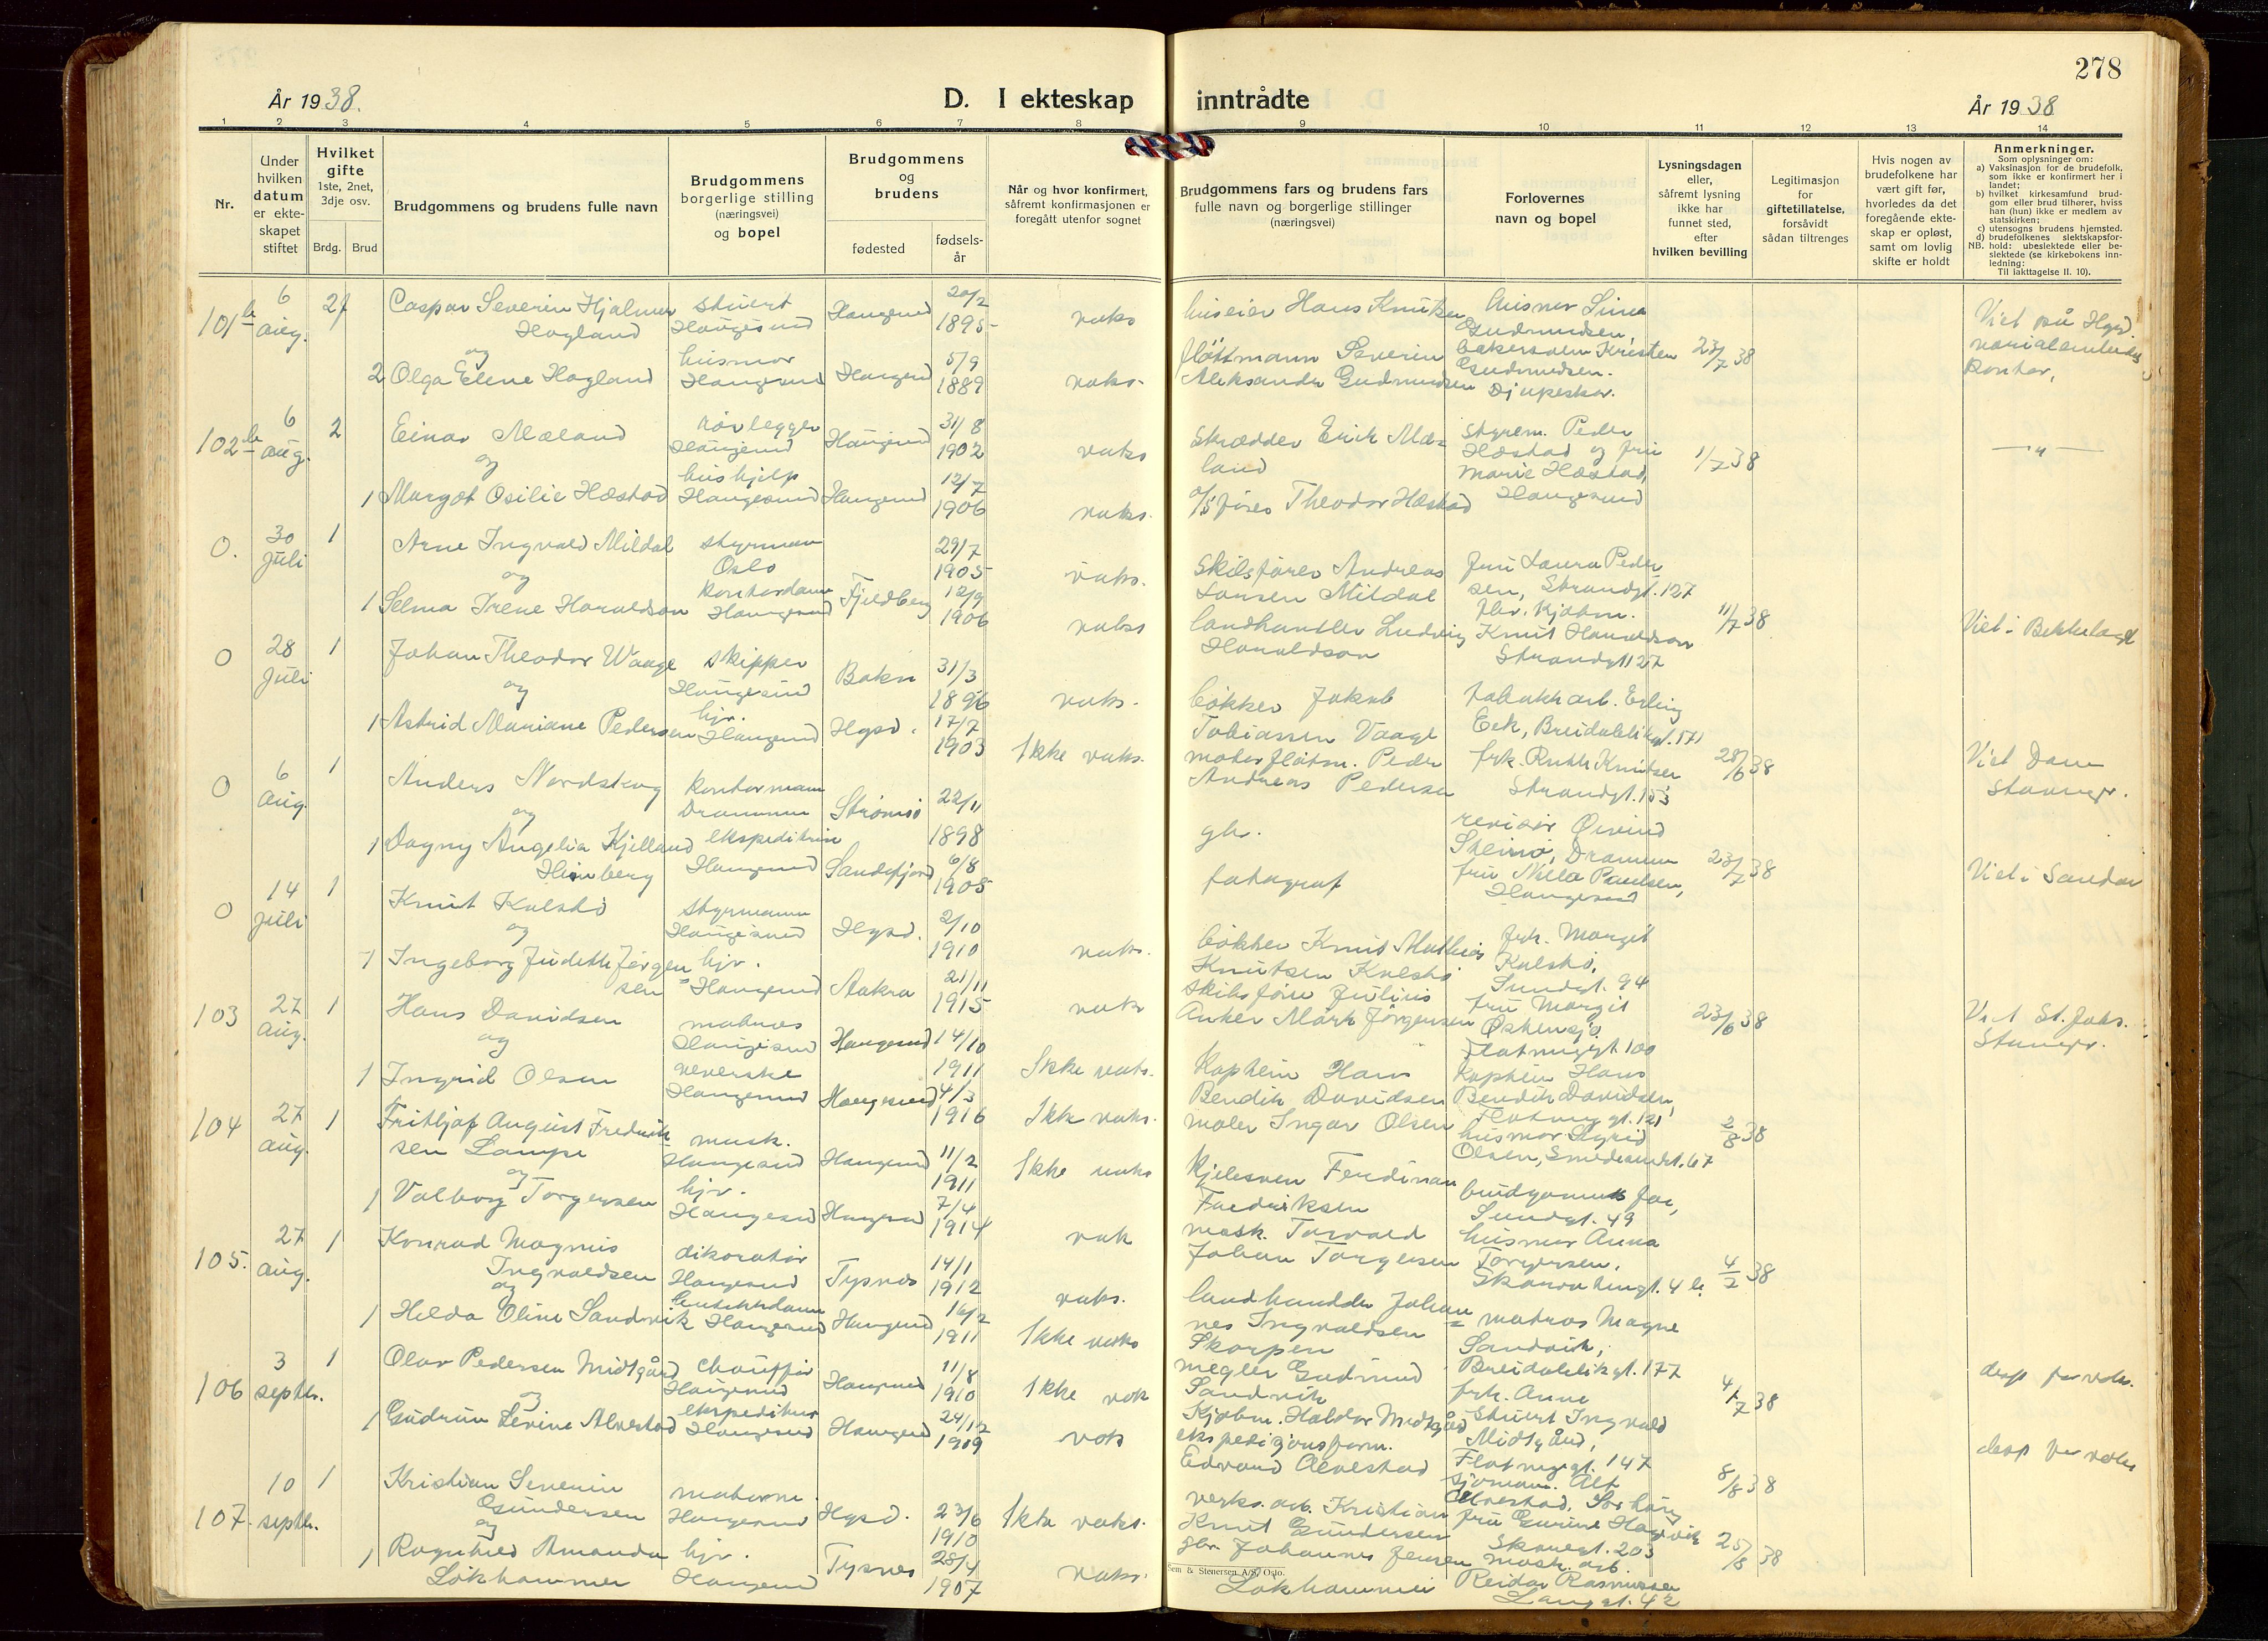 278
År 1938.
D. I ekteskap inntrådte
År 1938
1 2 3 4 5 6 7 8 9 10 11 12 13 14
Nr.
Under
hvilken
datum
er ekte-
skapet
stiftet
Hvilket
gifte
1ste, 2net,
3dje osv.
Brdg. Brud
Brudgommens og brudens fulle navn
Brudgommens
borgerlige stilling
(næringsvei)
og bopel
Brudgommens
og
brudens
fødested
fødsels-
år
Når og hvor konfirmert,
såfremt konfirmasjonen er
foregått utenfor sognet
Brudgommens fars og brudens fars
fulle navn og borgerlige stillinger
(næringsvei)
Forlovernes
navn og bopel
Lysningsdagen
eller,
såfremt lysning
ikke har
funnet sted,
efter
hvilken bevilling
Legitimasjon
for
giftetillatelse,
forsåvidt
sådan tiltrenges
Hvis nogen av
brudefolkene har
vært gift før,
hvorledes da det
foregående ekte-
skap er opløst,
samt om lovlig
skifte er holdt
Anmerkninger.
Som oplysninger om:
a) Vaksinasjon for de brudefolk,
som ikke er konfirmert her i
landet;
b) hvilket kirkesamfund brud-
gom eller brud tilhører, hviss
han (hun) ikke er medlem av
statskirken;
c) utensogns brudens hjemsted.
d) brudefolkenes slektskapsfor-
NB. hold: ubeslektede eller be-
slektede (se kirkebokens inn-
ledning:
Til iakttagelse II. 10).
101b 6 aug. 2
Caspar Severin Hjalmar
Hagland
stuert
Haugesund
Haugesund
20/2
1895
vaks
huseier Hans Knutsen
husmor Sina
Gudmundsen,
Viet på Hgsd.
kontor,
og
2 Olga Elene Hagland
husmor
Haugesund
Haugesund
5/9
1889
vaks.
fløttmann Severin
Aleksander Gudmundsen
bakersvenn Kristen
Gudmundsen.
Djupeskar.
23/7 38
102b 6 aug. 2
Einar Mæland
rørlegger
Haugesund
Haugesund
31/8
1902
vaks
skredder Erik Mæ=
land
styrem. Peder
Hæstad og fru
Marie Hæstad,
Haugesund
1/7 38
— " —
og
1 Margot Osilie Hæstad
hushjelp
Haugesund
Haugesund
12/7
1906
vaks.
Theodor Hæstad
0. 30 juli 1
Arne Ingvald Mildal
styrman
Oslo
29/7
1905
vaks.
Skibsfører Andreas
Larsen Mildal
fru Laura Peder
sen, Strandgt. 127
og
1 Selma Irene Haraldson
kontordame
Haugesund
Fjeldberg
12/9
1906
vaks
landhandler Ludvig
Haraldson
Knut Haraldson
Strandgt 127
11/7 38
Viet i Bekkelaget
0 28 juli 1
Johan Theodor Waage
skipper
Haugesund
Bokn
31/3
1896
vaks.
bøkker Jakob
Tobiassen Vaage
fabrikkarb. Erling
Eek, Breidablikgt. 171
og
1 Astrid Mariane Pedersen
hjv.
Haugesund
Hgsd.
17/7
1903
Ikke vaks.
motorfløtm. Peder
Andreas Pedersen
frk. Ruth Knutsen
Strandgt. 153
28/6 38
Viet Dom
Stavngr.
0 6 aug. 1
Anders Nordskog
kontormann
Drammen
Strømsø
22/11
1898
gb.
revisor Øivind
Steinsø, Drammen
og
1 Dagny Angelia Kjelland
Heinberg
ekspeditrise
Haugesund
Sandefjord
6/8
1905
fotograf
fru Nilla Paulsen,
Haugesund
23/7 38
Viet i Sandar
0 14 juli 1
Knut Kalstø
styrmann
Haugesund
Hgsd.
2/10
1910
vaks.
bøkker Knut Mathias
Knutsen Kalstø
frk. Margit
Kalstø,
Sundgt. 94
og
1 Ingeborg Judette Jørgen
sen
hjv.
Haugesund
Aakra
21/11
1915
vaks
skibsfører Julius
Anker Mørk Jørgensen
fru Margit
Østensjø
Flotmyrgt. 100
23/6 38
Viet St. Johs.
Stavngr.
103 27 aug. 1
Hans Davidsen
matros
Haugesund
Haugesund
14/10
1911
Ikke vaks.
kaptein Hans
Bendik Davidsen
kaptein Hans
Bendik Davidsen,
Flotmyrgt. 121
og
1 Ingrid Olsen
veverske
Haugesund
Haugesund
4/3
1916
Ikke vaks.
maler Ingar Olsen
husmor Sigrid
Olsen, Smedesundet. 67
2/8 38
104 27 aug. 1
Fritljof August Fredrik
sen Lampe
mask.
Haugesund
Haugesund
11/2
1911
Ikke vaks
kjelesven Ferdinan
Fredriksen
brudgommens far,
Sundgt. 49
og
1 Valborg Torgersen
hjv.
Haugesund
Haugesund
7/4
1914
vak
mask. Torvald
Johan Torgersen
husmor Anna
Torgersen,
4/2 38
105. 27 aug. 1
Konrad Magnus
Ingvaldsen
dikoratør
Haugesund
Tysnes
14/1
1912
vaks.
landhandler Johan=
nes Ingvaldsen
Skorpen
matros Magne
Sandvik,
Breidablikgt. 177
og
1 Helda Oline Sandvik
butikkdame
Haugesund
Haugesund
16/2
1911
Ikke vaks
megler Gudmund
Sandvik
frk. Anne
4/7 38
desp for vaks.
106 3 septbr. 1
Olav Pedersen Midtgård
chauffør
Haugesund
Haugesund
11/8
1910
Ikke vak
Kjøbm. Haldor Midtgård
Stuert Ingvald
Midtgård,
Flotmyrgt. 147
og
1 Gudrun Levine Alvestad
ekspeditrise
Haugesund
Haugesund
24/12
1909
vaks
ekspedisjonsform.
Edvard Alvestad
sjømann. Alf
Alvestad, Sørhaug
8/8 38
desp for vaks
107. 10 septbr. 1
Kristian Severin
Gundersen
Haugesund
Hgsd.
23/6
1910
Ikke vaks.
verks. arb. Kristian
Knut Gundersen
fru Gurine Hagevik
Skaregt. 203
og
1 Ragnhild Amanda
Løkhammer
hjv.
Haugesund
Tysnes
28/4
1907
vaks.
gbr. Johannes Jensen
Løkhammer
mask. arb.
Reidar Rasmussen
Langgt. 42
25/8 38
Sem & Stenersen A/S, Oslo.